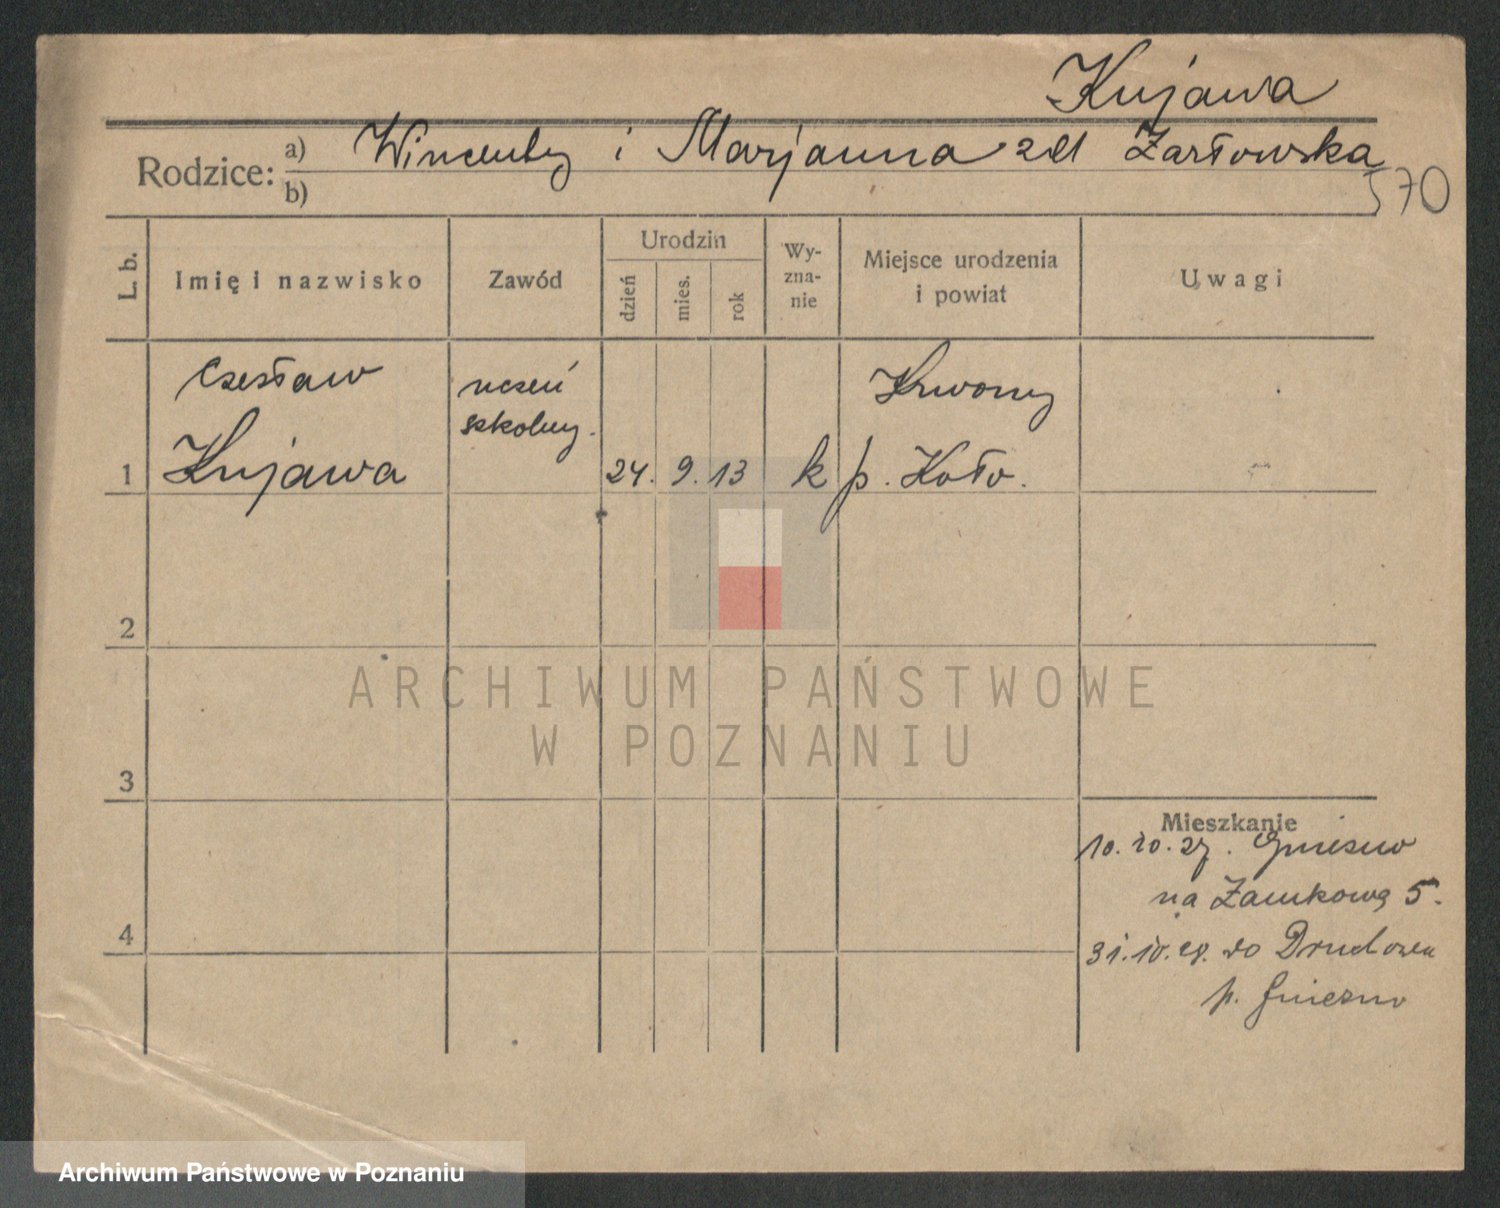 Kujawa
Rodzice: a) Wincenty i Marjanna zd Żarłowska
b)
570
L. b.
Imię i nazwisko
Zawód
Urodzin
dzień
mies.
rok
Wy-
zna-
nie
Miejsce urodzenia
i powiat
Uwagi
1
Czesław
Kujawa
uczeń
szkolny.
24. 9. 13
k
Krwony
p. Koło.
2
3
4
Mieszkanie
10. 10. 27. Gniezno
na Zamkową 5.
31. do
p. Gniezno
ARCHIWUM PAŃSTWOWE
W POZNANIU
Archiwum Państwowe w Poznaniu